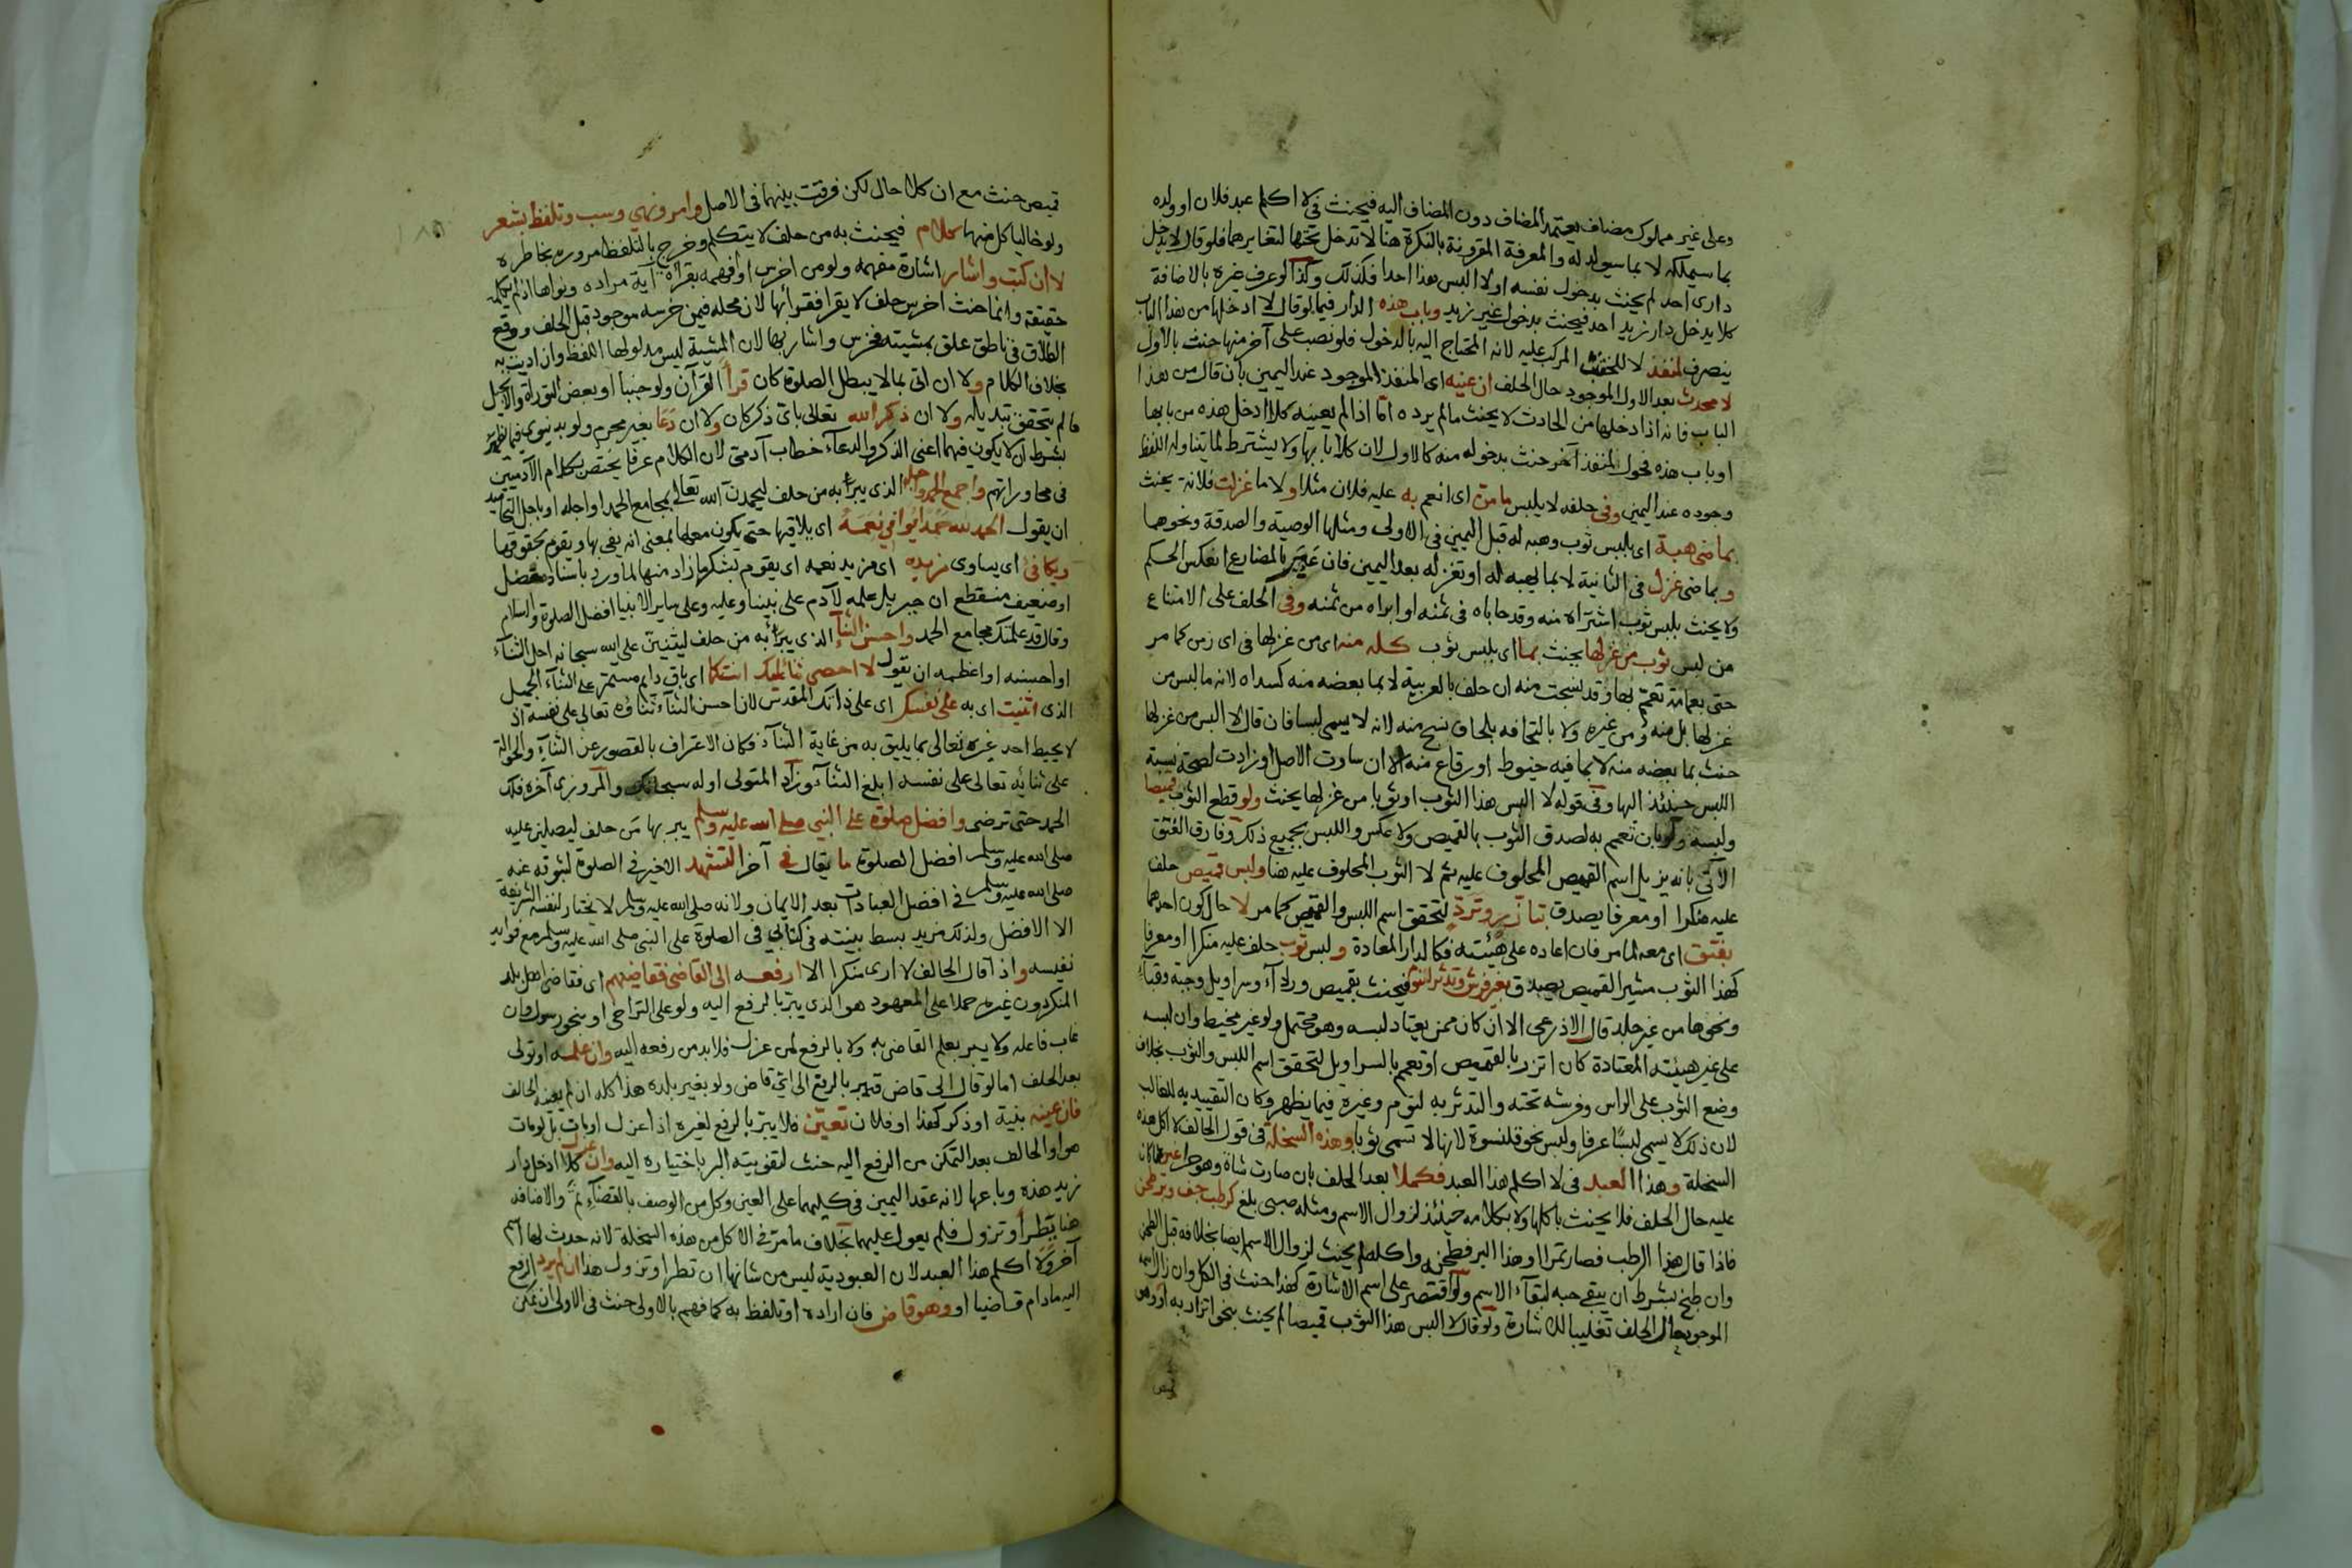 وعلى غير مملوك مضاف يعتمد المضاف دون المضاف اليه فيحنث في لا اكلم عبد فلان او ولده
بما سيملكه لا بما سيولد له والمعرفة المقرونة بالنكرة هنا لا تدخل تحتها لتغايرهما فلو قال لا يدخل
داري احد لم يحنث بدخول نفسه او لا البس هذا احدا فكذلك وكذا لو عرف غيره بالاضافة
كلا يدخل دار زيد احد فيحنث بدخول غير زيد وباب هذه الدار فيما لو قال لا ادخلها من هذا الباب
ينصرف لمنفذ لا للخشب المركب عليه لانه المحتاج اليه بالدخول فلو نصب على آخر منها حنث بالاول
لا محدث بعد الاول الموجود حال الحلف ان عينه اى المنفذ الموجود عند اليمين بان قال من هذا
الباب فانه اذا دخلها من الحادث لا يحنث ما لم يرده اما اذا لم يعينه كلا ادخل هذه من بابها
او باب هذه فحول لمنفذ آخر حنث بدخوله منه كالاول لان كلا بابها ولا يشترط لما تناوله اللفظ
وجوده عند اليمين وفى حلفه لا يلبس ما من اى انعم به عليه فلان مثلا او لا ما غزلت فلانة يحنث
بماضى هبة اى بلبس ثوب وهبه له قبل اليمين فى الاولى ومثلها الوصية والصدقة ونحوهما
وبماضى غزل فى الثانية لا بما يهبه له او تغزله بعد اليمين فان عبر بالمضارع انعكس الحكم
ولا يحنث بلبس ثوب اشتراه منه وقد حاباه فى ثمنه او ابراه من ثمنه وفى الحلف على الامتناع
من لبس ثوب من غزلها يحنث بما اى بلبس ثوب كله منه اى من غزلها فى اى زمن كما مر
حتى بعمامة تعمم بها وقد نسجت منه ان حلف بالعربية لا بما بعضه منه كسداه لانه ما لبس من
غزلها بل منه ومن غيره ولا بالتحافه بلحاف نسج منه لانه لا يسمى لبسا فان قال لا البس من غزلها
حنث بما بعضه منه لا بما فيه خيوط او رقاع منه الا ان ساوت الاصل او زادت لصحة نسبة
اللبس حينئذ اليها وفى قوله لا البس هذا الثوب او ثوبا من غزلها يحنث ولو قطع الثوب قميصا
ولبسه ولو بان تعمم به لصدق الثوب بالقميص ولا عكس واللبس بجميع ذلك وفارق الفتق
الآتى بانه يزيل اسم القميص المحلوف عليه ثم لا الثوب المحلوف عليه هنا ولبس قميص حلف
عليه منكرا او معرفا يصدق بتأزر وترد لتحقق اسم اللبس والقميص كما مر لا حال كون احدهما
بفتق اى معه لما مر فان اعاده على هيئته فكالدار المعادة ولبس ثوب حلف عليه منكرا او معرفا
كهذا الثوب مشيرا لقميص يصدق بغير فرش وتدثر لنوم فيحنث بقميص ورداء وسراويل وجبة وقباء
ونحوها من غير جلد قال الاذرعى الا ان كان ممن يعتاد لبسه وهو محتمل ولو غير مخيط وان لبسه
على غير هيئته المعتادة كان اتزر بالقميص او تعمم بالسراويل لتحقق اسم اللبس والثوب بخلاف
وضع الثوب على الراس وفرشه تحته والتدثر به لنوم وغيره فيما يظهر وكان التقييد به للغالب
لان ذلك لا يسمى لبسا عرفا ولبس نحو قلنسوة لانها لا تسمى ثوبا وهذه السخلة فى قول الحالف لا اكل هذه
السخلة وهذا العبد فى لا اكلم هذا العبد فكملا بعد الحلف بان صارت شاة وهو حرا غير ما كان
عليه حال الحلف فلا يحنث باكلها ولا بكلامه حينئذ لزوال الاسم ومثله صبى بلغ كرطب جف وبر طحن
فاذا قال هذا الرطب فصار تمرا او هذا البر فطحن واكله لم يحنث لزوال الاسم ايضا بخلافه قبل الطحن
وان طبخ بشرط ان يبقى حبه لبقاء الاسم ولو اقتصر على اسم الاشارة كهذا حنث فى الكل وان زال اسمه
الموجود حال الحلف تغليبا للاشارة ولو قال لا البس هذا الثوب قميصا لم يحنث بنحو اتزار به
قميص
قميص حنث مع ان كلا حال لكن فرقت بينهما فى الاصل وامر ونهى وسب وتلفظ بشعر
ولو خاليا كل منها كلام فيحنث به من حلف لا يتكلم وخرج بالتلفظ مروره بخاطره
لا ان كتب واشار اشارة مفهمة ولو من اخرس او افهمه بقراة آية مراده ونواها اذ لم يكلمه
حقيقة وانما حنث اخرس حلف لا يقرا فقراها لان محله فيمن خرسه موجود قبل الحلف ووقع
الطلاق فى ناطق علق بمشيته فخرس واشار بها لان المشية ليس مدلولها اللفظ وان اديت به
بخلاف الكلام ولا ان اتى بما لا يبطل الصلوة كان قرا القرآن ولو جنبا او بعض التوراة والانجيل
ما لم يتحقق تبديله ولا ان ذكر الله تعالى باى ذكر كان ولا ان دعا بغير محرم ولو بدنيوى فيما يظهر
بشرط ان لا يكون فيهما اعنى الذكر والدعاء خطاب آدمى لان الكلام عرفا يختص بكلام الآدميين
فى محاوراتهم واجمع الحمد واجله الذى يبرأ به من حلف ليحمدن الله تعالى بمجامع الحمد او اجله او باجل التحاميد
ان يقول الحمد لله حمدا يوافى نعمه اى يلاقيها حتى يكون معها بمعنى انه يفى بها ويقوم بحقوقها
ويكافئ اى يساوى مزيده اى مزيد نعمه اى يقوم بشكر ما زاد منها لما ورد باسناد معضل
او ضعيف منقطع ان جبريل علمه لآدم على نبينا وعليه وعلى ساير الانبيا افضل الصلوة والسلام
وقال قد علمتك مجامع الحمد واحسن الثناء الذى يبرأ به من حلف ليثنين على الله سبحانه اجل الثناء
او احسنه او اعظمه ان يقول لا احصى ثناء عليك انت كما اى باق دايم مستمر على الثناء الجميل
الذى اثنيت اى به على نفسك اى على ذاتك المقدس لان احسن الثناء ثناؤه تعالى على نفسه اذ
لا يحيط احد غيره تعالى بما يليق به من غاية الثناء فكان الاعتراف بالقصور عن الثناء والحوالة
على ثنائه تعالى على نفسه ابلغ الثناء وزاد المتولى اوله سبحانك والمروزى آخره فلك
الحمد حتى ترضى وافضل صلوة على النبى صلى الله عليه وسلم يبر بها من حلف ليصلين عليه
صلى الله عليه وسلم افضل الصلوة ما يقال فى آخر التشهد الاخير فى الصلوة لثبوته عنه
صلى الله عليه وسلم فى افضل العبادات بعد الايمان ولانه صلى الله عليه وسلم لا يختار لنفسه الشريفة
الا الافضل ولذلك مزيد بسط بينته فى كتابى فى الصلوة على النبى صلى الله عليه وسلم مع فوايد
نفيسه واذا قال الحالف لا ارى منكرا الا ارفعه الى القاضى فقاضيهم اى فقاضى اهل بلد
المنكر دون غيره حملا على المعهود هو الذى يبر بالرفع اليه ولو على التراخى او بنحو رسول وان
غاب فاعله ولا يبر بعلم القاضى به ولا بالرفع لمن عزل فلا بد من رفعه اليه وان علمه او تولى
بعد الحلف اما لو قال الى قاض فيبر بالرفع الى اى قاض ولو بغير بلده هذا كله ان لم يعينه الحالف
فان عينه بنية او ذكر كهذا او فلان تعين فلا يبر بالرفع لغيره اذا عزل او مات بل لو مات
هو او الحالف بعد التمكن من الرفع اليه حنث لتفويته البر باختياره اليه وان عزل كلا ادخل دار
زيد هذه وباعها لانه عقد اليمين فى كليهما على العين وكل من الوصف بالقضاء ثم والاضافه
هنا يطرأ وتزول فلم يعول عليهما بخلاف ما مر فى لا اكل من هذه السخلة لانه حدث لها اسم
آخر ولا اكلم هذا العبد لان العبودية ليس من شانها ان تطرا وتزول هذا ان لم يرد ارفع
اليه ما دام قاضيا او وهو قاض فان اراده او تلفظ به كما فهم بالاولى حنث فى الاولى ان تمكن